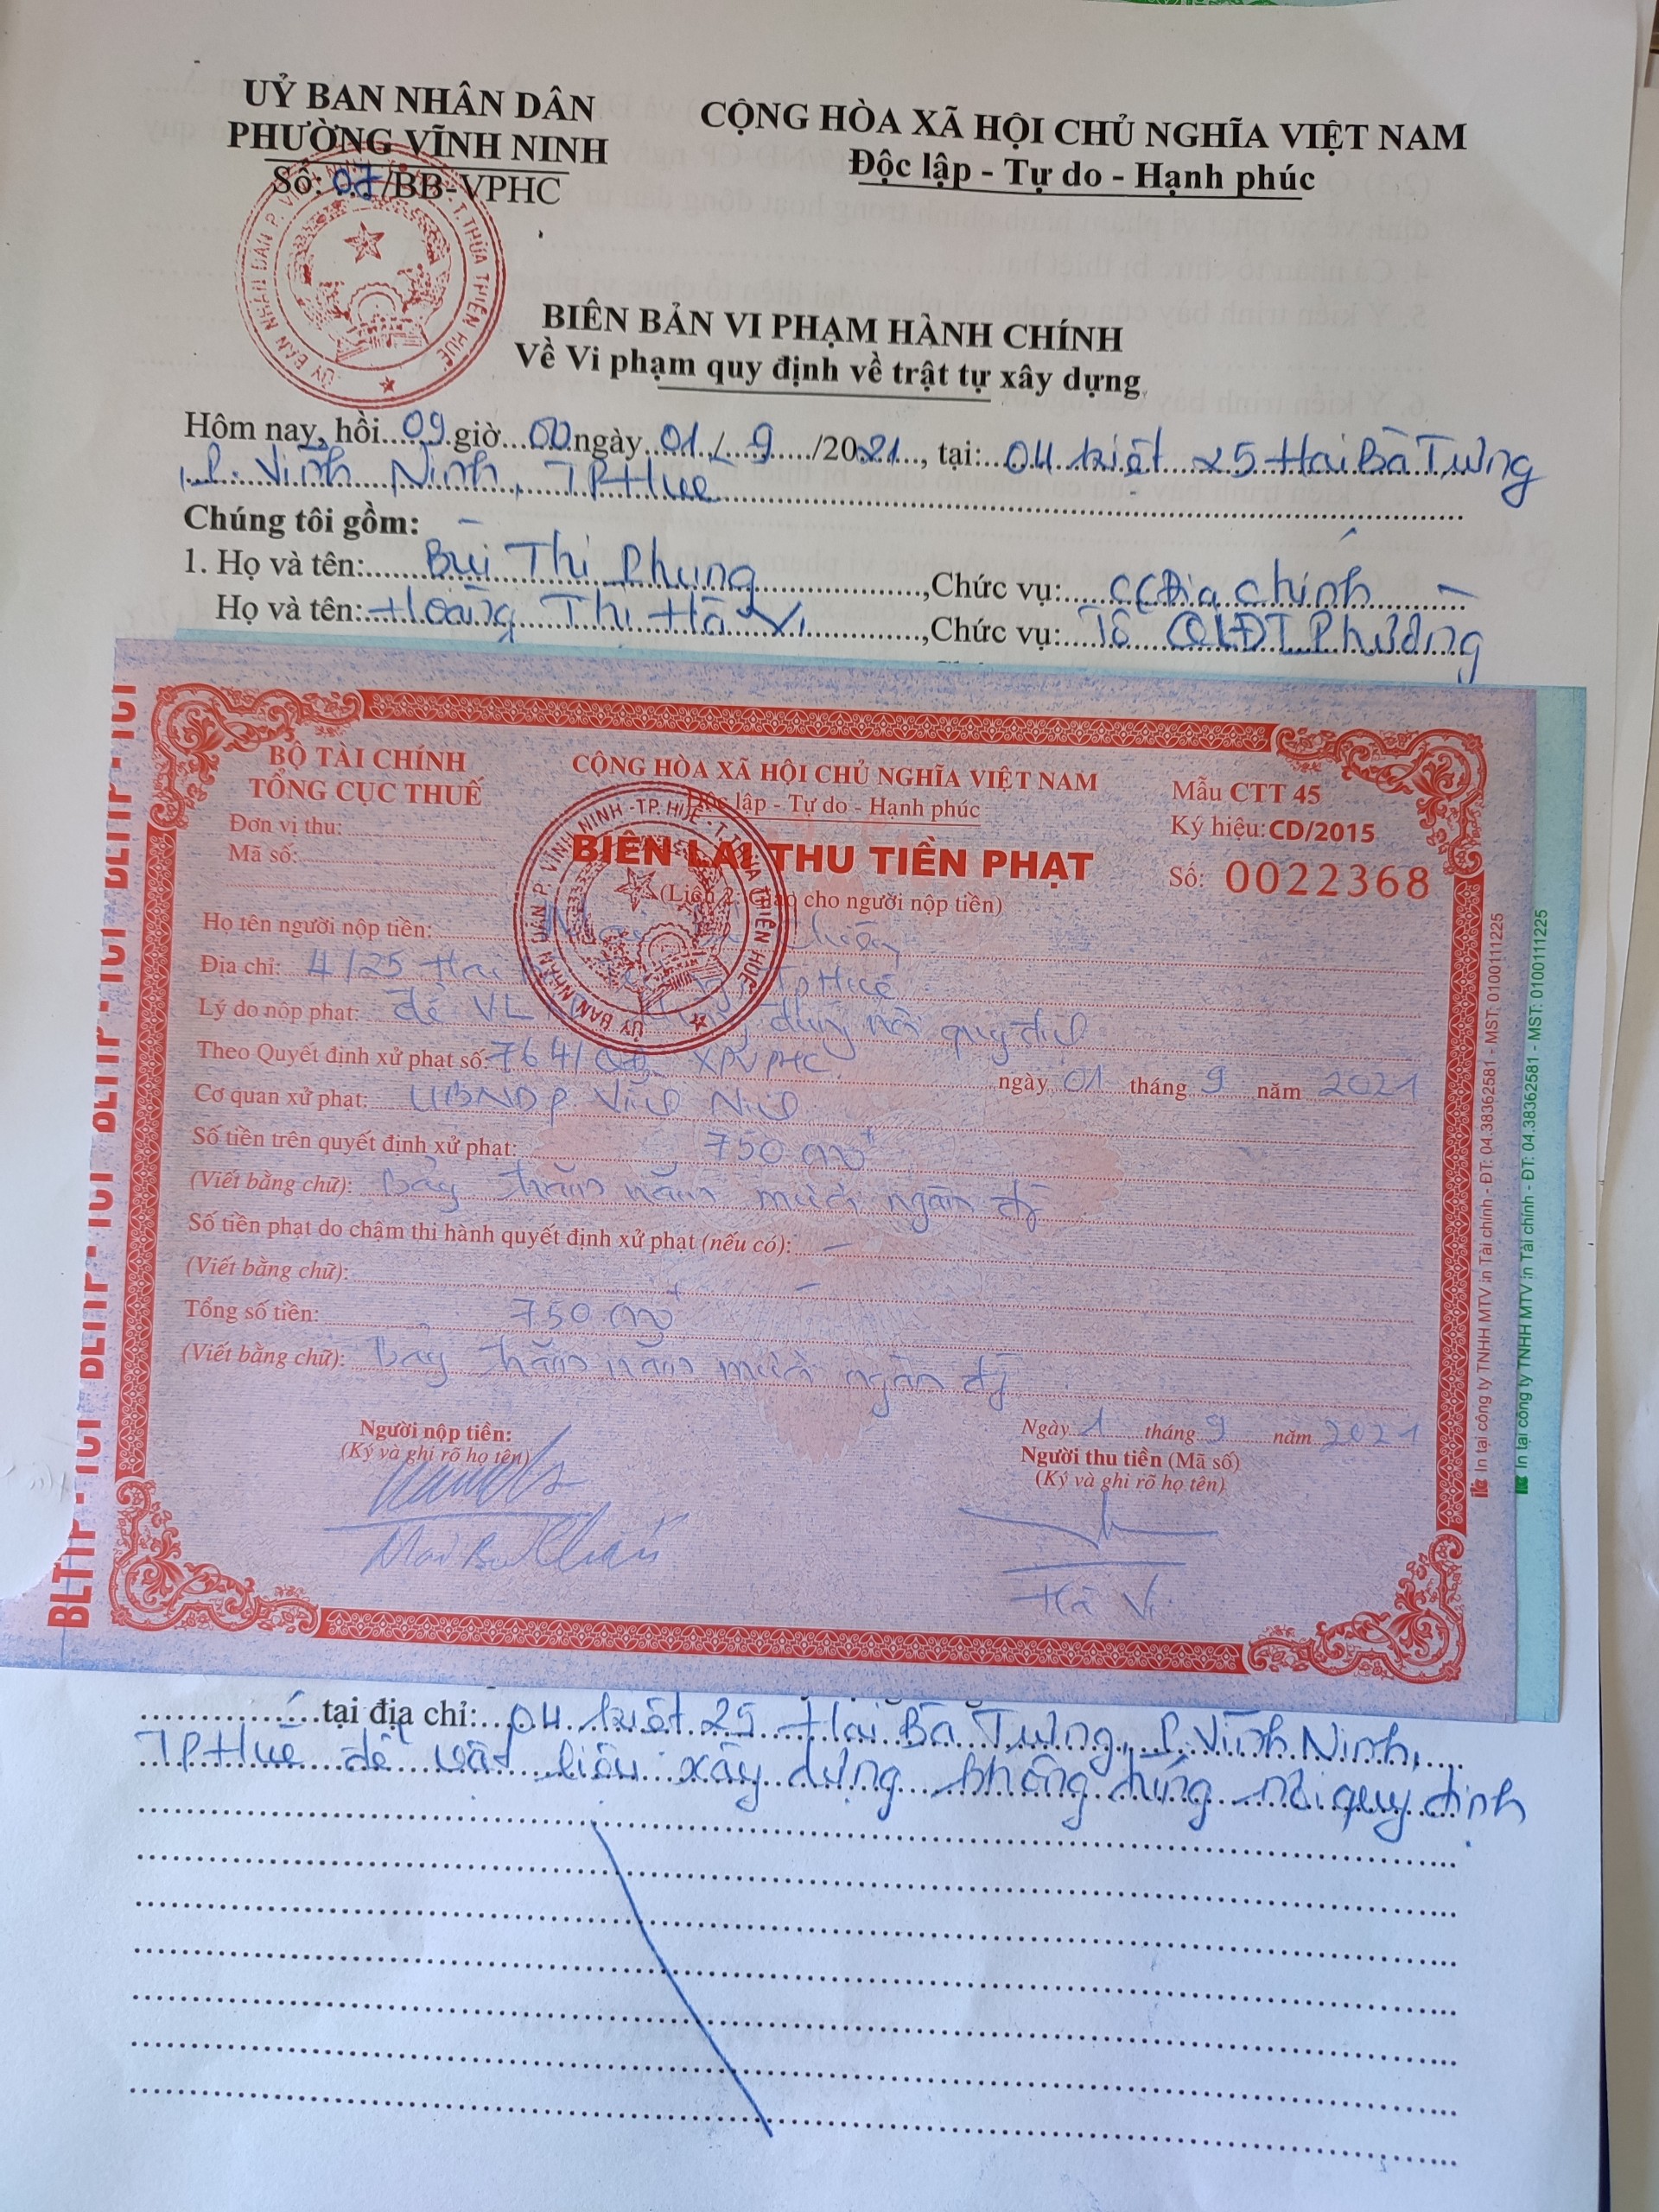 UỶ BAN NHÂN DÂN
PHƯỜNG VĨNH NINH
Số: 07/BB-VPHC
CỘNG HÒA XÃ HỘI CHỦ NGHĨA VIỆT NAM
Độc lập - Tự do - Hạnh phúc
BIÊN BẢN VI PHẠM HÀNH CHÍNH
Về Vi phạm quy định về trật tự xây dựng
Hôm nay, hồi 09 giờ 00 ngày 01/9/2021, tại: 04 kiệt 25 Hai Bà Trưng
P. Vĩnh Ninh, TP Huế
Chúng tôi gồm:
1. Họ và tên: Bùi Thị Phụng, Chức vụ: CC Địa chính
Họ và tên: Hoàng Thị Hà Vi, Chức vụ: Tổ QLĐT Phường
BỘ TÀI CHÍNH
TỔNG CỤC THUẾ
Đơn vị thu:
Mã số:
CỘNG HÒA XÃ HỘI CHỦ NGHĨA VIỆT NAM
Độc lập - Tự do - Hạnh phúc
BIÊN LAI THU TIỀN PHẠT
(Liên 2: Giao cho người nộp tiền)
Mẫu CTT 45
Ký hiệu: CD/2015
Số: 0022368
Họ tên người nộp tiền:
Địa chỉ: 4/25 Hai TP Huế
Lý do nộp phạt: để VL dựng nơi quy định
Theo Quyết định xử phạt số: 764/QĐ-XPVPHC ngày 01 tháng 9 năm 2021
Cơ quan xử phạt: UBND P. Vĩnh Ninh
Số tiền trên quyết định xử phạt: 750.000đ
(Viết bằng chữ): Bảy trăm năm mươi ngàn đồng
Số tiền phạt do chậm thi hành quyết định xử phạt (nếu có): –
(Viết bằng chữ): –
Tổng số tiền: 750.000đ
(Viết bằng chữ): Bảy trăm năm mươi ngàn đồng
Người nộp tiền:
(Ký và ghi rõ họ tên)
Ngày 1 tháng 9 năm 2021
Người thu tiền (Mã số)
(Ký và ghi rõ họ tên)
Hà Vi
BLTTP - TCT BLTTP - TCT BLTTP - TCT BLTTP - TCT
In tại công ty TNHH MTV in Tài chính - ĐT: 04.38362581 - MST: 0100111225
In tại công ty TNHH MTV in Tài chính - ĐT: 04.38362581 - MST: 0100111225
tại địa chỉ: 04 kiệt 25 Hai Bà Trưng, P. Vĩnh Ninh,
TP Huế để vật liệu xây dựng không đúng nơi quy định
ỦY BAN NHÂN DÂN P. VĨNH NINH - TP. HUẾ - T. THỪA THIÊN HUẾ
ỦY BAN NHÂN DÂN P. VĨNH NINH - TP. HUẾ - T. THỪA THIÊN HUẾ